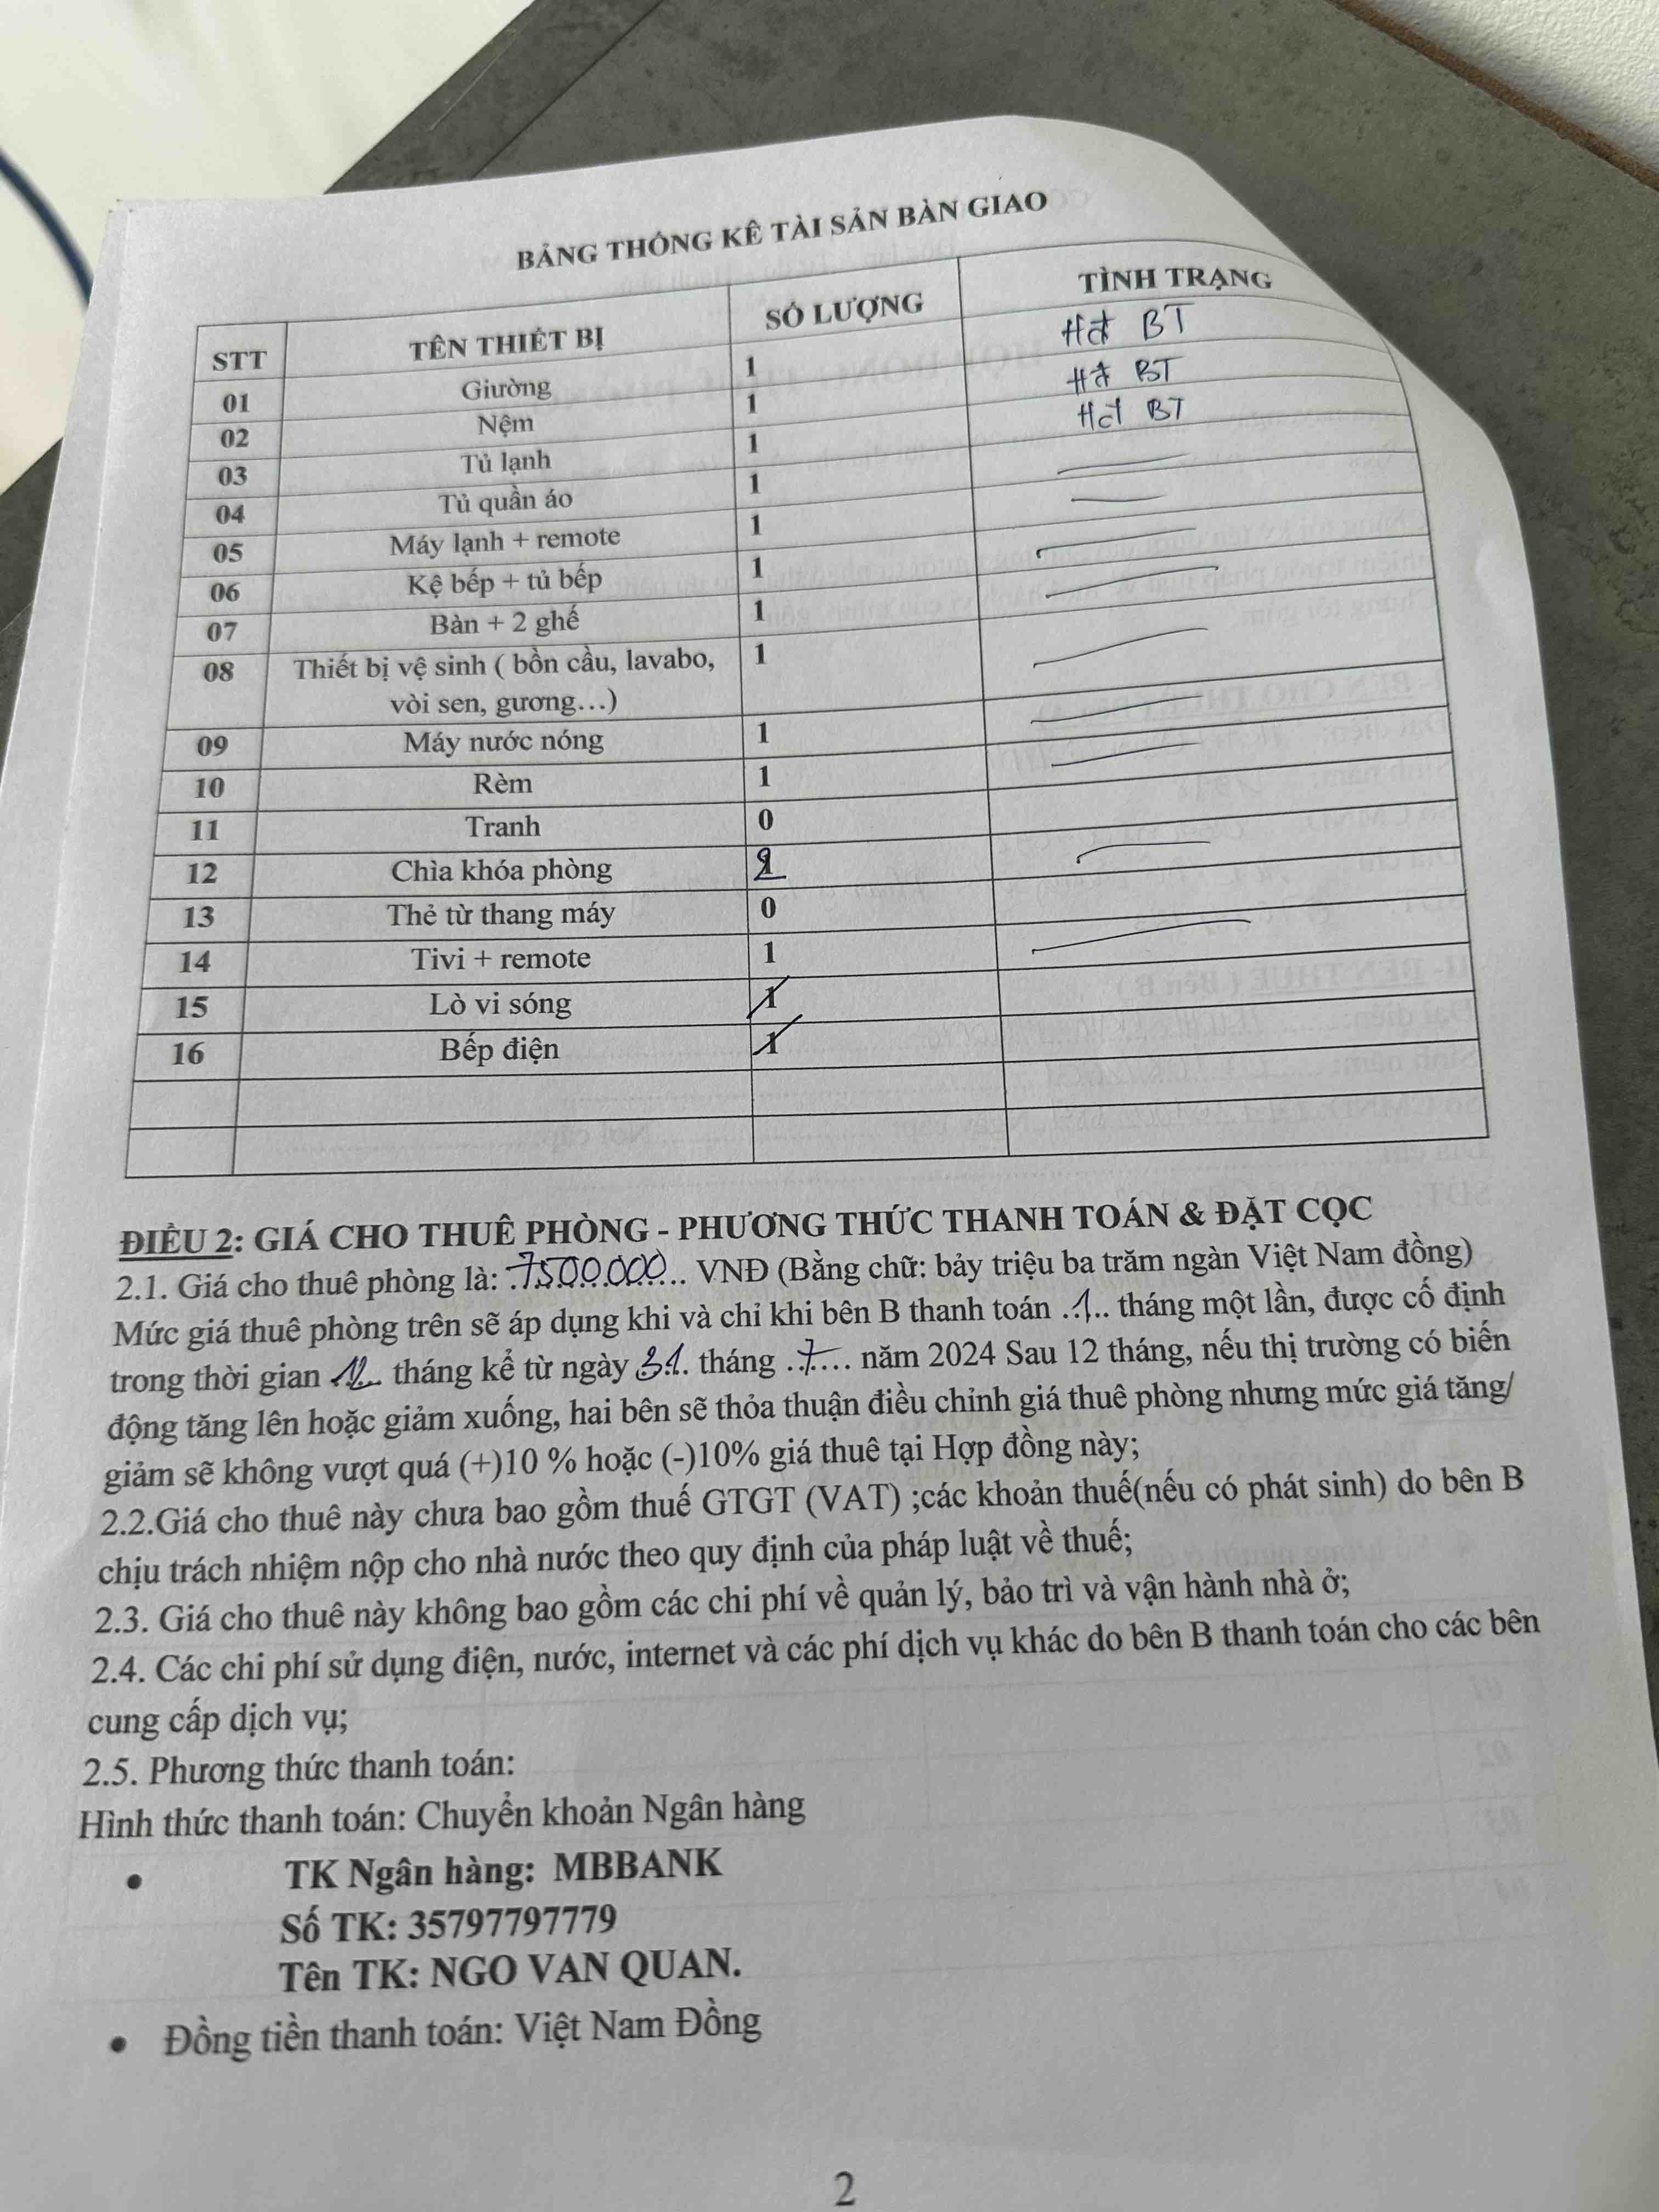 BẢNG THỐNG KÊ TÀI SẢN BÀN GIAO
STT TÊN THIẾT BỊ SỐ LƯỢNG TÌNH TRẠNG
01 Giường 1 Hđ BT
02 Nệm 1 Hđ BT
03 Tủ lạnh 1 Hđ BT
04 Tủ quần áo 1
05 Máy lạnh + remote 1
06 Kệ bếp + tủ bếp 1
07 Bàn + 2 ghế 1
08 Thiết bị vệ sinh ( bồn cầu, lavabo, 1
vòi sen, gương…)
09 Máy nước nóng 1
10 Rèm 1
11 Tranh 0
12 Chìa khóa phòng 2
13 Thẻ từ thang máy 0
14 Tivi + remote 1
15 Lò vi sóng 1
16 Bếp điện 1
ĐIỀU 2: GIÁ CHO THUÊ PHÒNG - PHƯƠNG THỨC THANH TOÁN & ĐẶT CỌC
2.1. Giá cho thuê phòng là: .7500.000... VNĐ (Bằng chữ: bảy triệu ba trăm ngàn Việt Nam đồng)
Mức giá thuê phòng trên sẽ áp dụng khi và chỉ khi bên B thanh toán .1.. tháng một lần, được cố định
trong thời gian .12.. tháng kể từ ngày 31. tháng ..7... năm 2024 Sau 12 tháng, nếu thị trường có biến
động tăng lên hoặc giảm xuống, hai bên sẽ thỏa thuận điều chỉnh giá thuê phòng nhưng mức giá tăng/
giảm sẽ không vượt quá (+)10 % hoặc (-)10% giá thuê tại Hợp đồng này;
2.2.Giá cho thuê này chưa bao gồm thuế GTGT (VAT) ;các khoản thuế(nếu có phát sinh) do bên B
chịu trách nhiệm nộp cho nhà nước theo quy định của pháp luật về thuế;
2.3. Giá cho thuê này không bao gồm các chi phí về quản lý, bảo trì và vận hành nhà ở;
2.4. Các chi phí sử dụng điện, nước, internet và các phí dịch vụ khác do bên B thanh toán cho các bên
cung cấp dịch vụ;
2.5. Phương thức thanh toán:
Hình thức thanh toán: Chuyển khoản Ngân hàng
• TK Ngân hàng: MBBANK
Số TK: 35797797779
Tên TK: NGO VAN QUAN.
• Đồng tiền thanh toán: Việt Nam Đồng
2